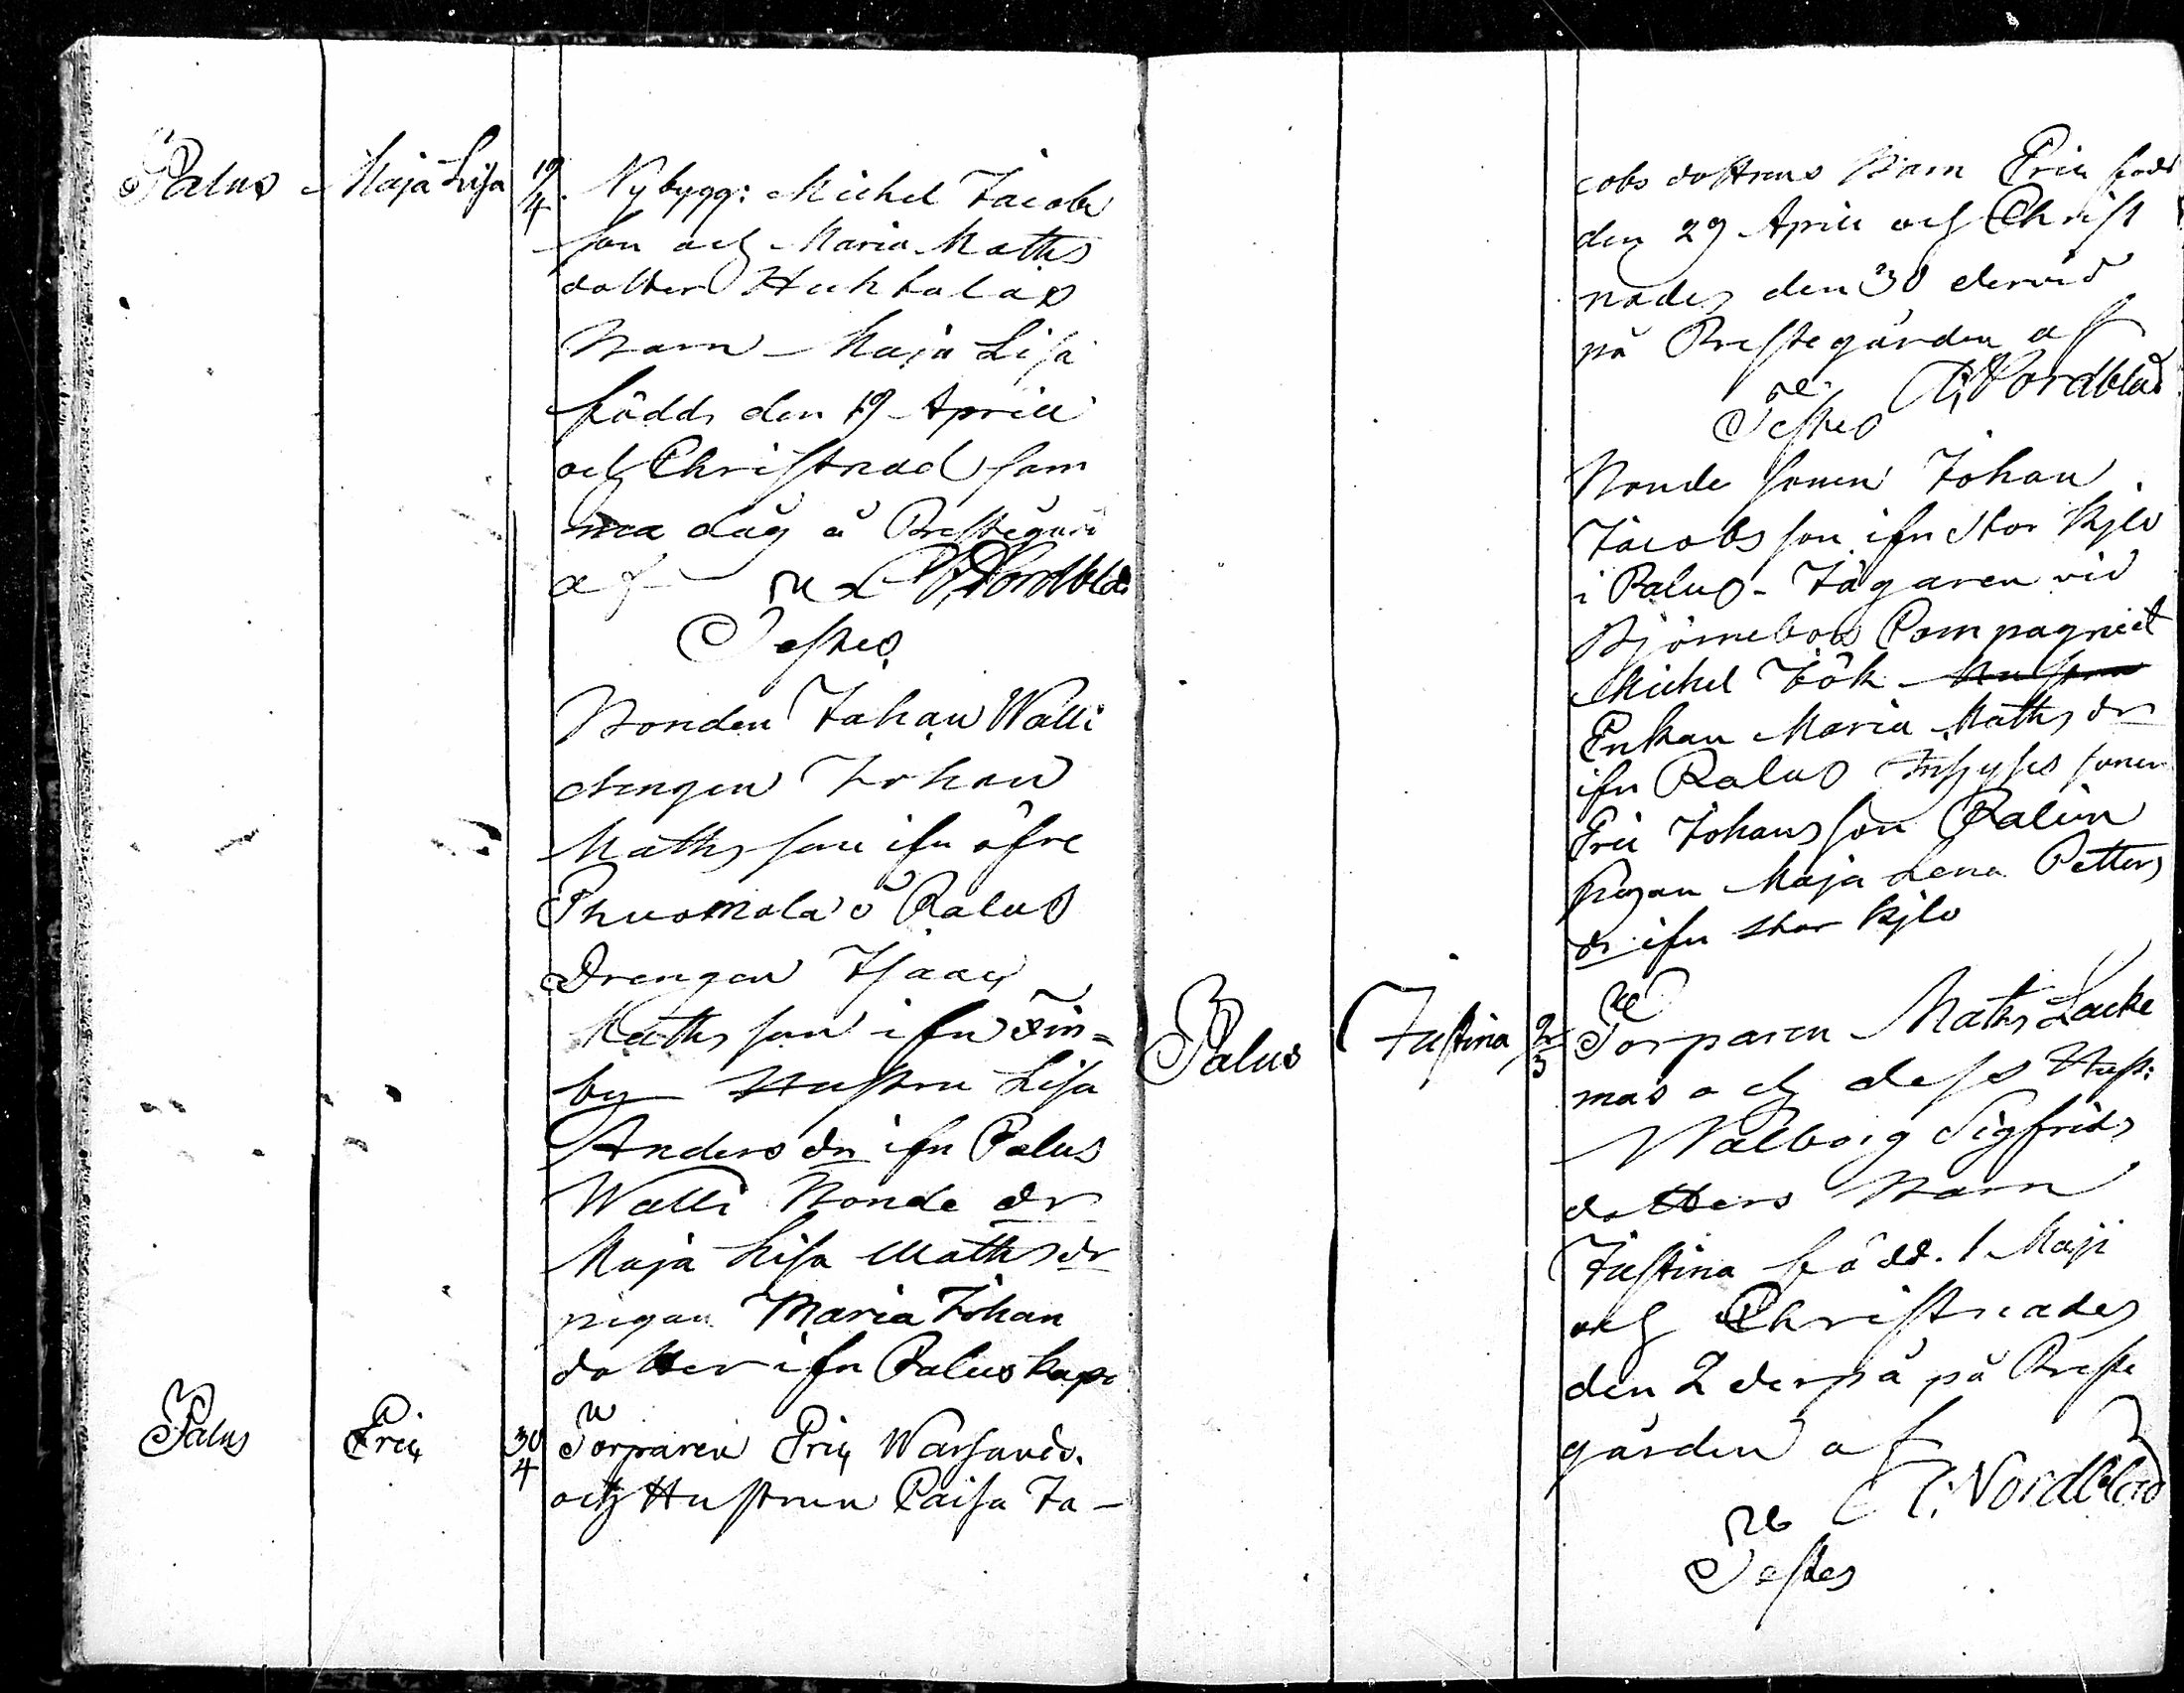 Palus Maja Lisa 19/4 Nybygg: Michel Jacobs
son och Maria Maths
dotter Huhtalas
Barn Maja Lisa
födds den 19 Aprill
och Christnad sam
ma dag å Prestegård
af Nordblad
Testes
Bonden Johan Walli
drengen Johan
Mathsson ifrn öfre
i Palus
Drengen Isaac
Mathsson ifrn Tin=
by Hustru Lisa
Anders dr ifrn Palus
Walli Bonde dr
Maja Lisa Maths dr
pigan Maria Johan
dotter ifrn Palus
Palus Eric 30/4 Torparen Eric
och Hustrun Caisa Ja-
cobs dottrens Barn Eric född
den 29 Aprill och Christ
nades den 30 dervid
på Prestegården af
Nordblad
Testes
Bonde sonen Johan
Jacobsson ifrn Stor Kylö
i Palus - Jägaren vid
Björneborgs Compagniet
Michel Bök
Enkan Maria Maths dr
ifrn Palus Inhyses sonen
Eric Johansson Palus
pigan Maja Lena Petters
dr ifrn stor Kylö
Palus Justina 2/5 Torparen Maths Lacke
mas och dess Hust:
Walborg Sigfrids
dotters Barn
Justina född. 1 Maji
och Christnades
den 2 derpå på Preste
gården af
Nordblad
Testes